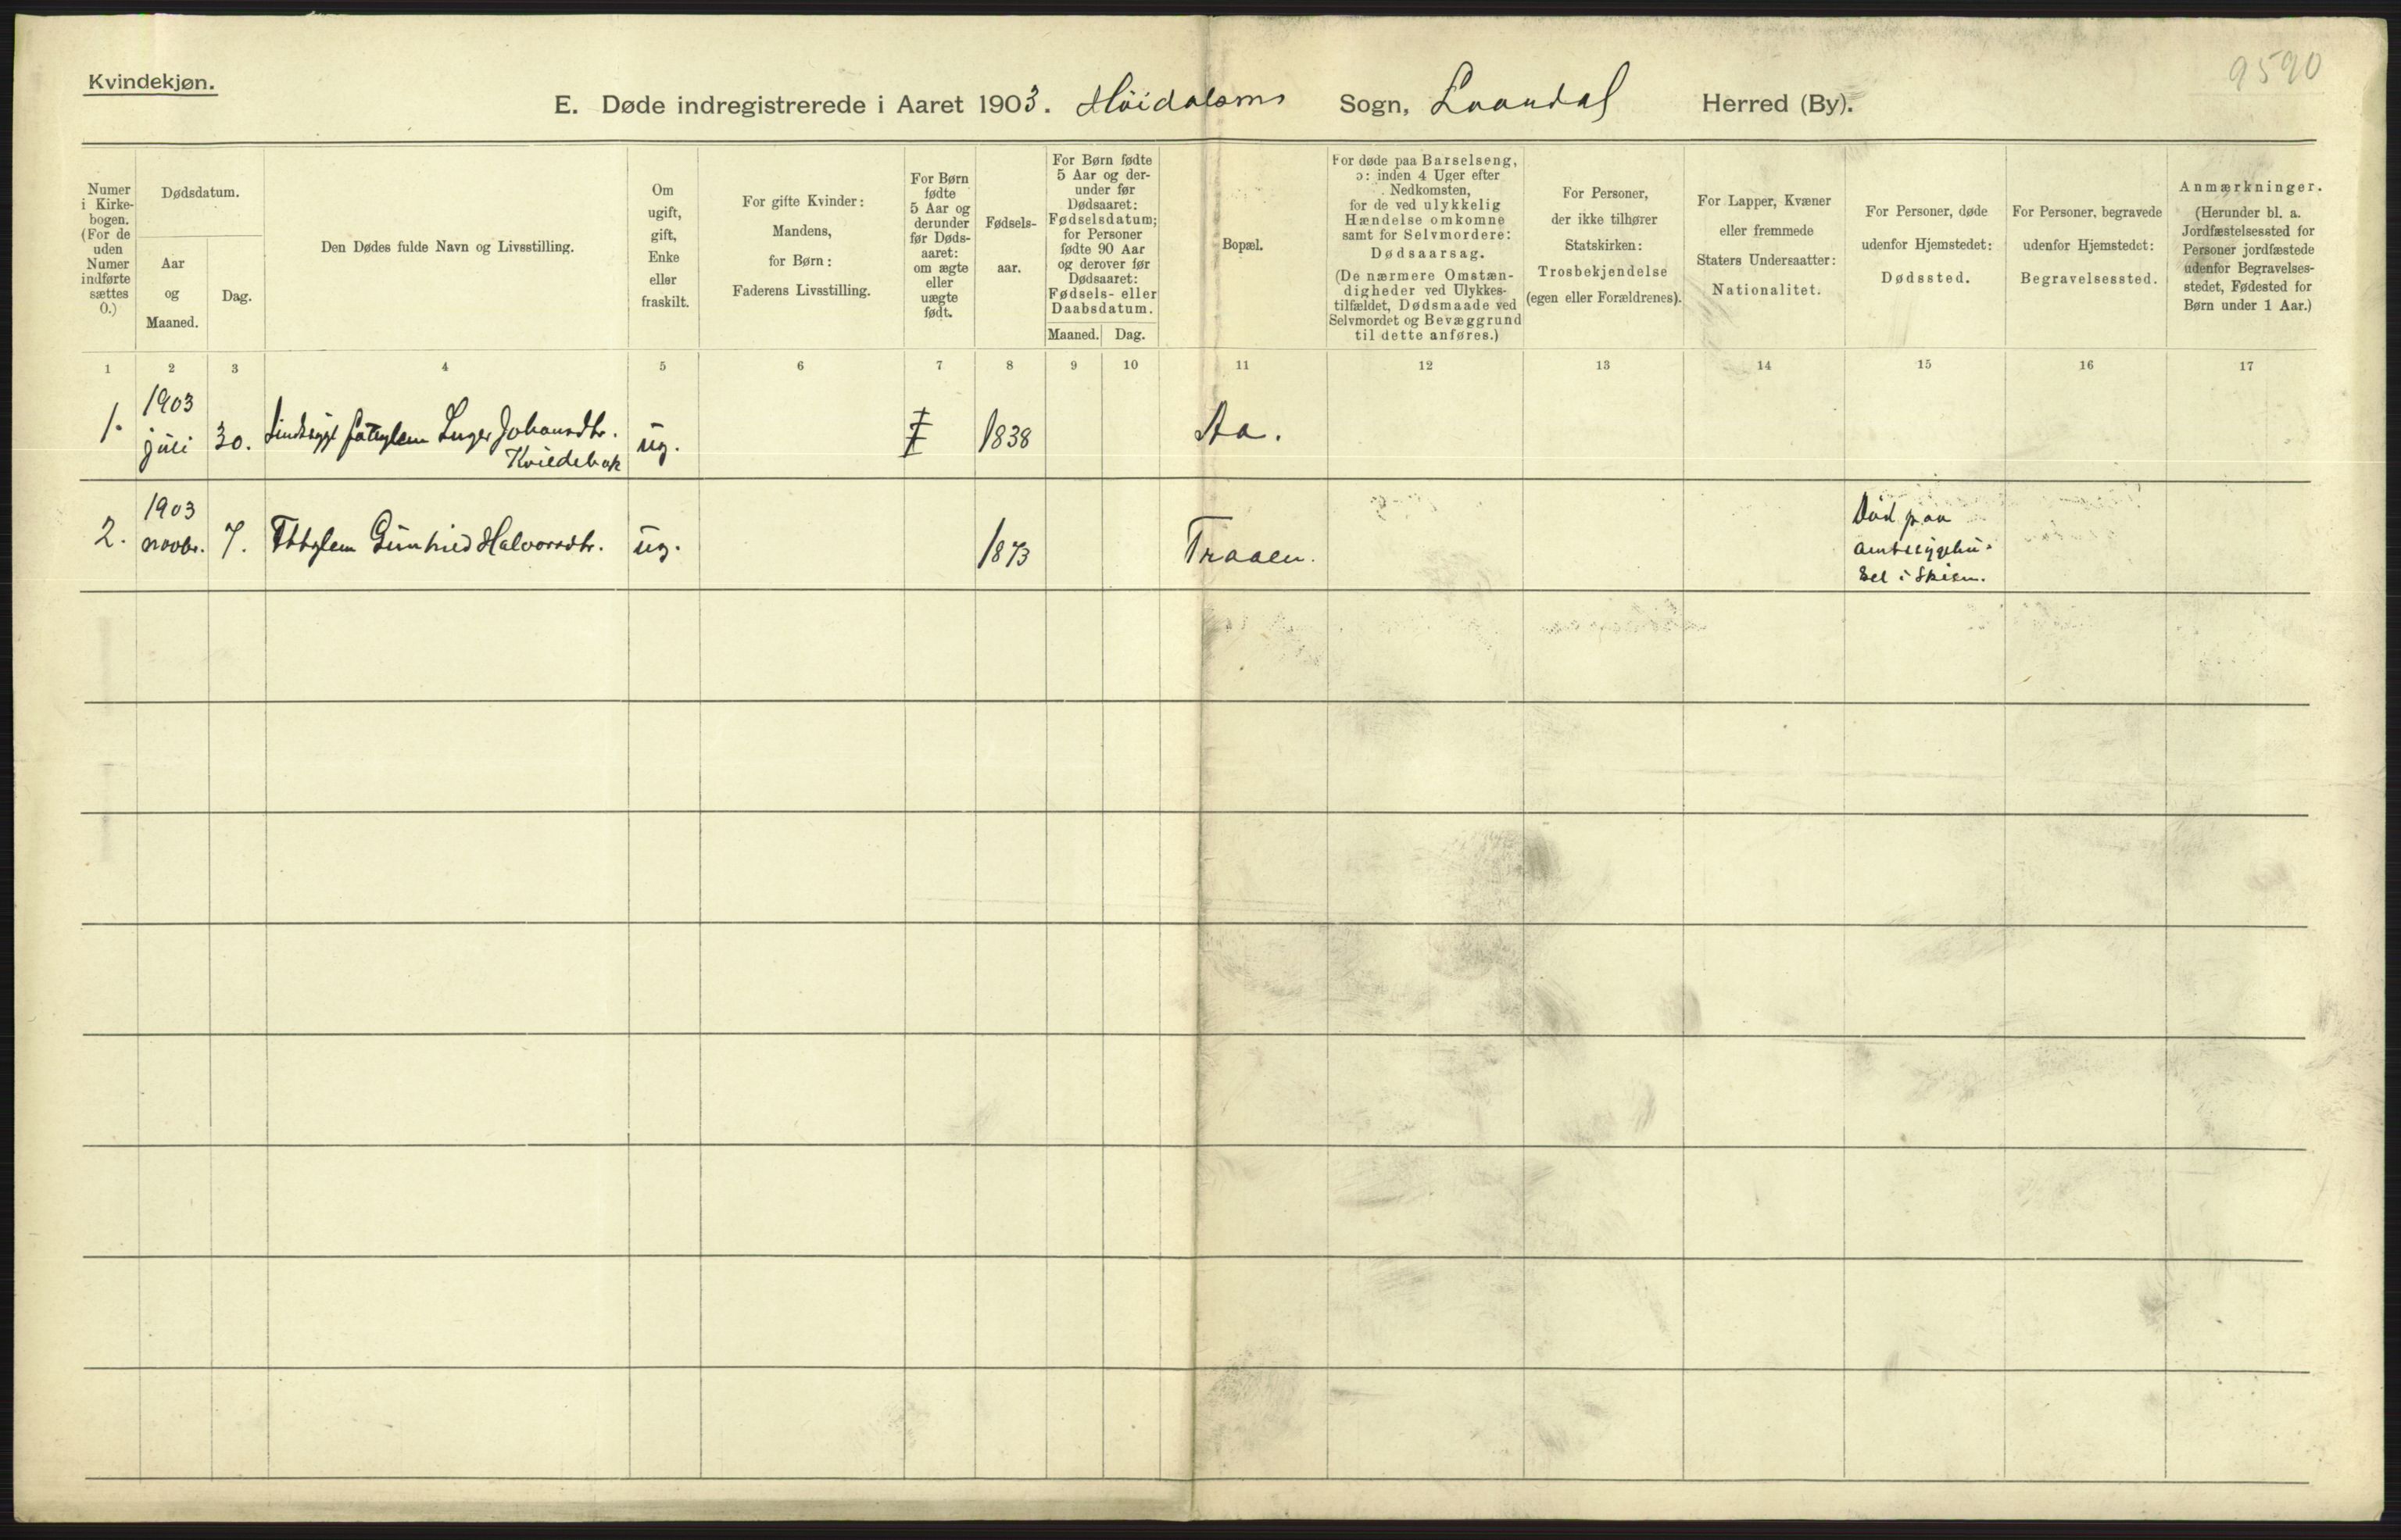 Kvindekjøn.
9590
E. Døde indregistrerede i Aaret 1903. Höidalsmo Sogn, Laardal Herred (By).
Numer
i Kirke-
bogen.
(For de
uden
Numer
indførte
sættes
0.)
Dødsdatum.
Aar
og
Maaned.
Dag.
Den Dødes fulde Navn og Livsstilling.
Om
ugift,
gift,
Enke
eller
fraskilt.
For gifte Kvinder:
Mandens,
for Børn:
Faderens Livsstilling.
For Børn
fødte
5 Aar og
derunder
før Døds-
aaret:
om ægte
eller
uægte
født.
Fødsels-
aar.
For Børn fødte
5 Aar og der-
under før
Dødsaaret:
Fødselsdatum;
for Personer
fødte 90 Aar
og derover før
Dødsaaret:
Fødsels- eller
Daabsdatum.
Maaned. Dag.
Bopæl.
For døde paa Barselseng,
ɔ: inden 4 Uger efter
Nedkomsten,
for de ved ulykkelig
Hændelse omkomne
samt for Selvmordere:
Dødsaarsag.
(De nærmere Omstæn-
digheder ved Ulykkes-
tilfældet, Dødsmaade ved
Selvmordet og Bevæggrund
til dette anføres.)
For Personer,
der ikke tilhører
Statskirken:
Trosbekjendelse
(egen eller Forældrenes).
For Lapper, Kvæner
eller fremmede
Staters Undersaatter:
Nationalitet.
For Personer, døde
udenfor Hjemstedet:
Dødssted.
For Personer, begravede
udenfor Hjemstedet:
Begravelsessted.
Anmærkninger.
(Herunder bl. a.
Jordfæstelsessted for
Personer jordfæstede
udenfor Begravelses-
stedet, Fødested for
Børn under 1 Aar.)
1 2 3 4 5 6 7 8 9 10 11 12 13 14 15 16 17
1903
1. juli 30. Sindssyge fattiglem Inger Johansdtr. ug. 1838 Aa.
Kvildebæk
1903
2. novbr. 7. Fttglem Gunhild Halvorsdtr. ug. 1873 Traaen.
Död paa
amtssygehu-
set i Skien.